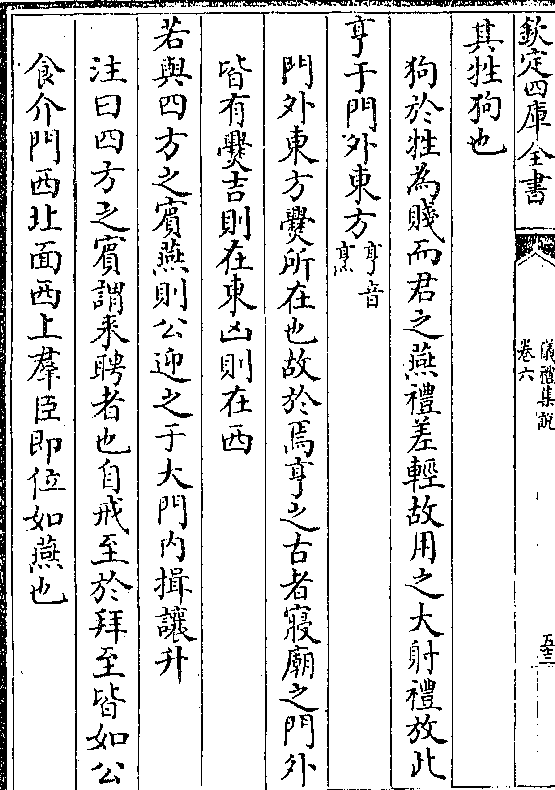 欽定四庫全書
儀禮集說
卷六
五三
其牲狗也
狗於牲為賤而君之燕禮差輕故用之大射禮放此
亨于門外東方亨音烹
門外東方爨所在也故於焉亨之古者寢廟之門外
皆有爨吉則在東凶則在西
若與四方之賓燕則公迎之于大門內揖讓升
注曰四方之賓謂来聘者也自戒至於拜至皆如公
食介門西北面西上羣臣即位如燕也